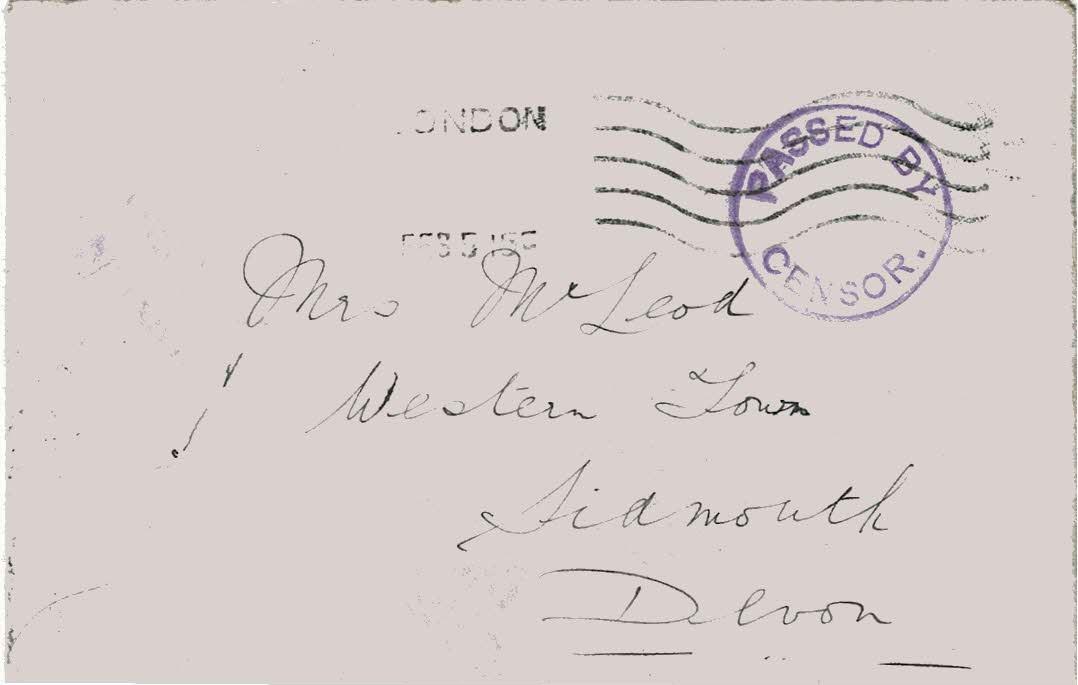 LONDON
PASSED BY
CENSOR.
FEB 5
Mrs McLeod
Western Town
Sidmouth
Devon